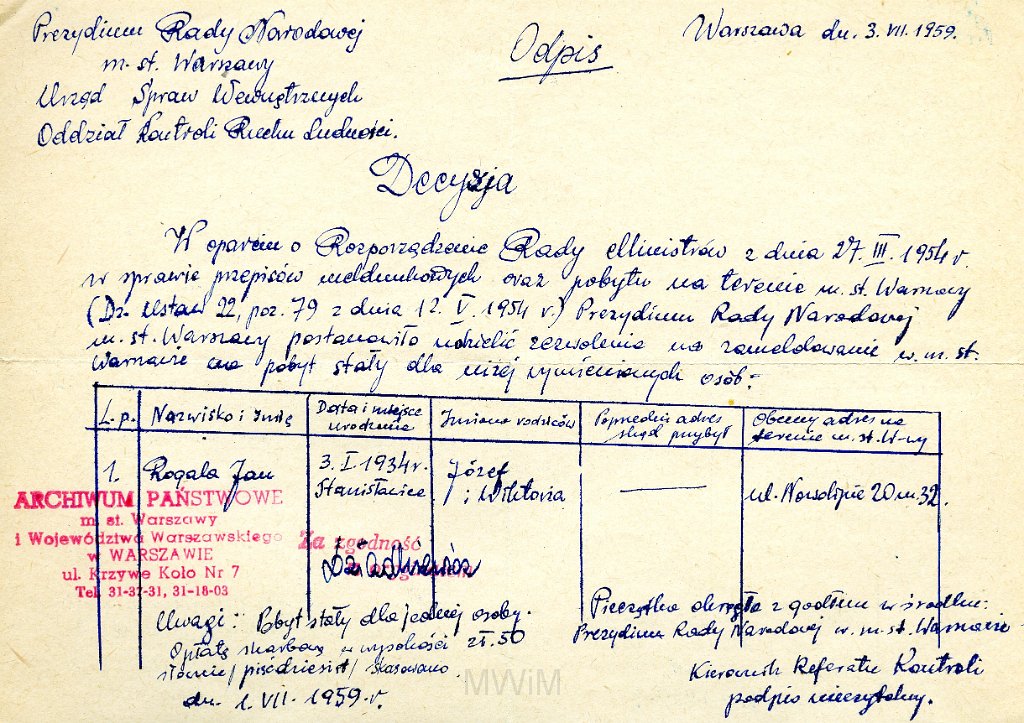 Prezydium Rady Narodowej
m. st. Warszawy
Urząd Spraw Wewnętrznych
Oddział Kontroli Ruchu Ludności.
Odpis
Warszawa dn. 3.VII.1959.
Decyzja
W oparciu o Rozporządzenie Rady Ministrów z dnia 27.III.1954 r.
w sprawie przepisów meldunkowych oraz pobytu na terenie m. st. Warszawy
(Dz. Ustaw 22, poz. 79 z dnia 12.V.1954 r.) Prezydium Rady Narodowej
m. st. Warszawy postanowiło udzielić zezwolenia na zameldowanie w m. st.
Warszawie na pobyt stały dla niżej wymienionych osób:
L.p. Nazwisko i Imię Data i miejsce urodzenia Imiona rodziców Poprzedni adres skąd przybył Obecny adres na terenie m. st. W-wy
1. Rogala Jan 3.I.1934 r. Stanisławice Józef i Wiktoria — ul. Nowolipie 20 m. 32.
ARCHIWUM PAŃSTWOWE
m. st. Warszawy
i Województwa Warszawskiego
w WARSZAWIE
ul. Krzywe Koło Nr 7
Tel. 31-37-31, 31-18-03
Za zgodność
z oryginałem
Uwagi: Pobyt stały dla jednej osoby.
Opłatę skarbową w wysokości zł. 50
słownie /pięćdziesiąt/ skasowano.
dn. 1.VII.1959 r.
Pieczątka okrągła z godłem w środku:
Prezydium Rady Narodowej w m. st. Warszawie
Kierownik Referatu Kontroli
podpis nieczytelny.
MWiM